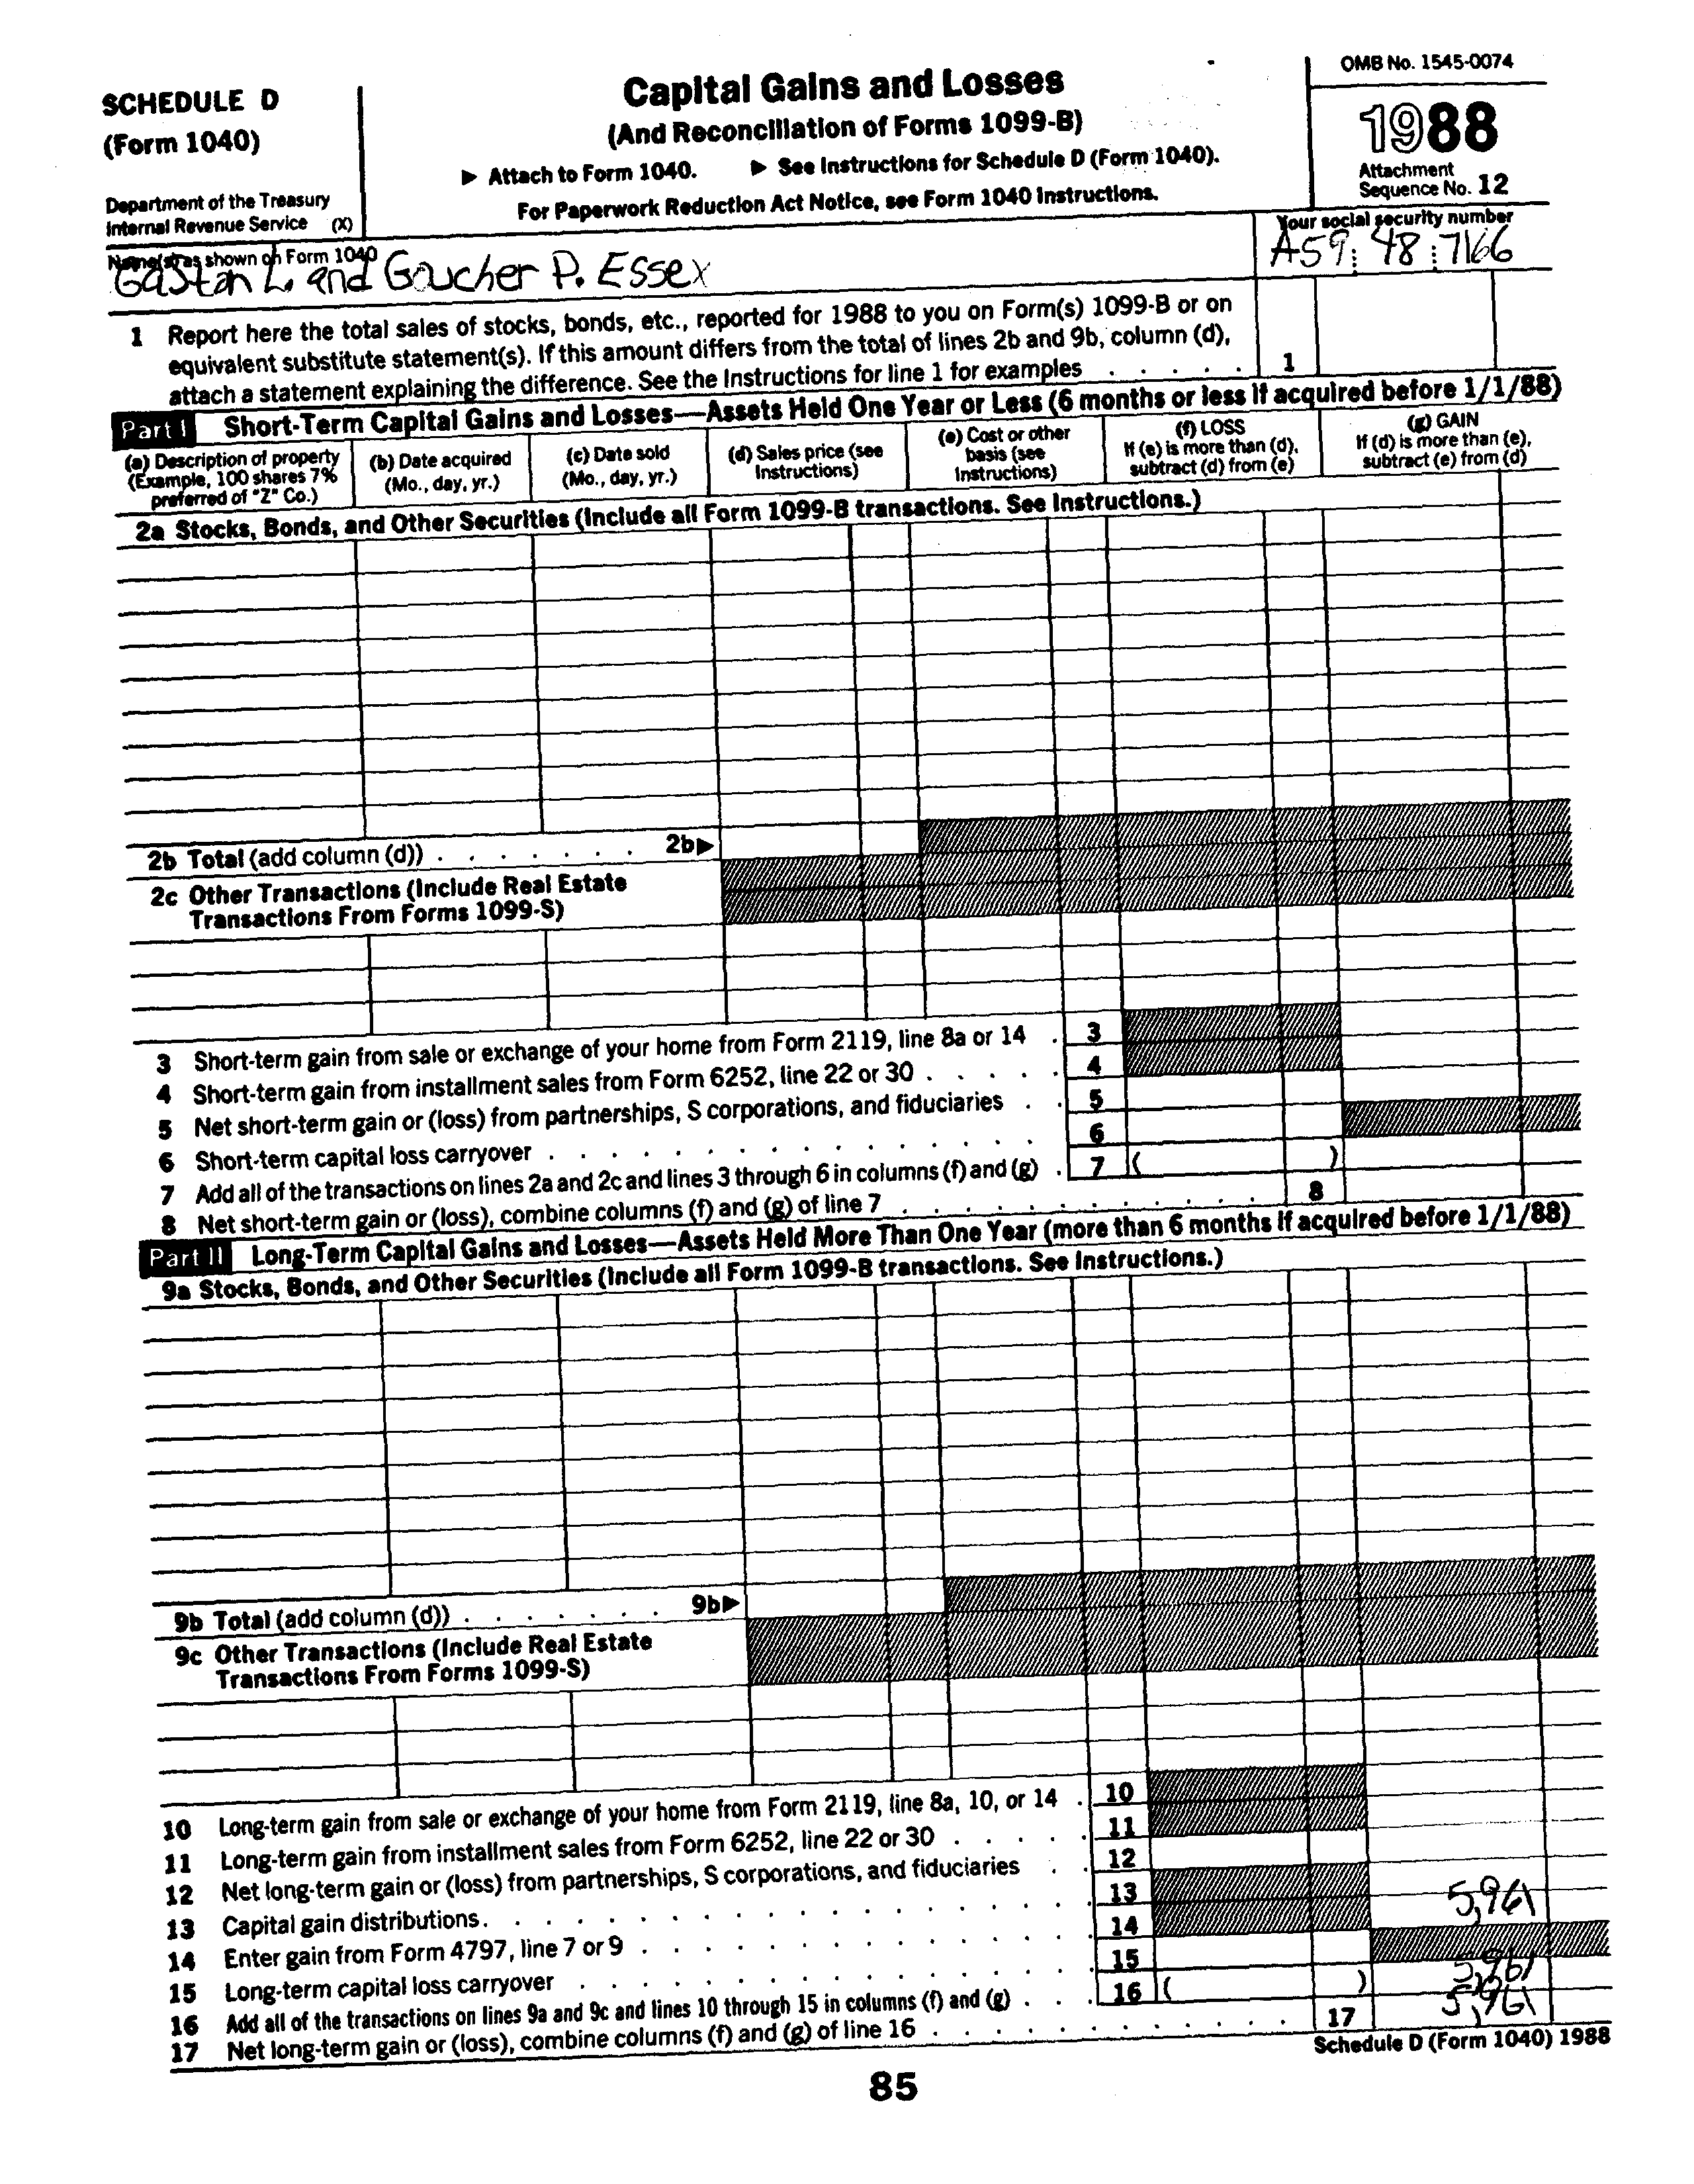 SCHEDULE D
(Form 1040)
Department of the Treasury
Internal Revenue Service (X)
Capital Gains and Losses
(And Reconciliation of Forms 1099-B)
▶ Attach to Form 1040. ▶ See Instructions for Schedule D (Form 1040).
For Paperwork Reduction Act Notice, see Form 1040 Instructions.
OMB No. 1545-0074
1988
Attachment
Sequence No. 12
Name(s) as shown on Form 1040
Gaston L. and Goucher P. Essex
Your social security number
A59 48 7166
1 Report here the total sales of stocks, bonds, etc., reported for 1988 to you on Form(s) 1099-B or on
equivalent substitute statement(s). If this amount differs from the total of lines 2b and 9b, column (d),
attach a statement explaining the difference. See the Instructions for line 1 for examples . . . . . 1
Part I Short-Term Capital Gains and Losses—Assets Held One Year or Less (6 months or less if acquired before 1/1/88)
(a) Description of property
(Example, 100 shares 7%
preferred of "Z" Co.)
(b) Date acquired
(Mo., day, yr.)
(c) Date sold
(Mo., day, yr.)
(d) Sales price (see
Instructions)
(e) Cost or other
basis (see
Instructions)
(f) LOSS
If (e) is more than (d),
subtract (d) from (e)
(g) GAIN
If (d) is more than (e),
subtract (e) from (d)
2a Stocks, Bonds, and Other Securities (Include all Form 1099-B transactions. See Instructions.)
2b Total (add column (d)) . . . . . . . 2b▶
2c Other Transactions (Include Real Estate
Transactions From Forms 1099-S)
3 Short-term gain from sale or exchange of your home from Form 2119, line 8a or 14 . 3
4 Short-term gain from installment sales from Form 6252, line 22 or 30 . . . . . 4
5 Net short-term gain or (loss) from partnerships, S corporations, and fiduciaries . . 5
6 Short-term capital loss carryover . . . . . . . . . . . . . 6
7 Add all of the transactions on lines 2a and 2c and lines 3 through 6 in columns (f) and (g) . 7 ( )
8 Net short-term gain or (loss), combine columns (f) and (g) of line 7 . . . . . . . . . 8
Part II Long-Term Capital Gains and Losses—Assets Held More Than One Year (more than 6 months if acquired before 1/1/88)
9a Stocks, Bonds, and Other Securities (Include all Form 1099-B transactions. See Instructions.)
9b Total (add column (d)) . . . . . . . 9b▶
9c Other Transactions (Include Real Estate
Transactions From Forms 1099-S)
10 Long-term gain from sale or exchange of your home from Form 2119, line 8a, 10, or 14 . 10
11 Long-term gain from installment sales from Form 6252, line 22 or 30 . . . . . 11
12 Net long-term gain or (loss) from partnerships, S corporations, and fiduciaries . . 12
13 Capital gain distributions . . . . . . . . . . . . . . . 13
14 Enter gain from Form 4797, line 7 or 9 . . . . . . . . . . . . 14 5,961
15 Long-term capital loss carryover . . . . . . . . . . . . . 15
16 Add all of the transactions on lines 9a and 9c and lines 10 through 15 in columns (f) and (g) . . . 16 ( ) 5,961
17 Net long-term gain or (loss), combine columns (f) and (g) of line 16 . . . . . . . . . . 17 5,961
Schedule D (Form 1040) 1988
85